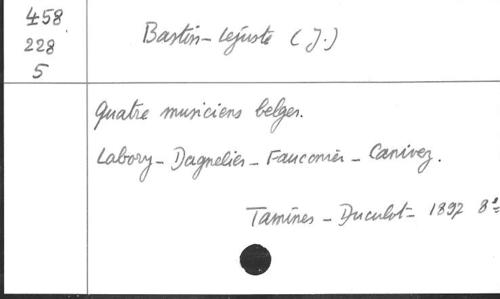 458
228
5
Bastin-Lejuste (J.)
Quatre musiciens belges.
Labory - Dagnelies - Fauconier - Canivez.
Tamines - Duculot - 1897 8º